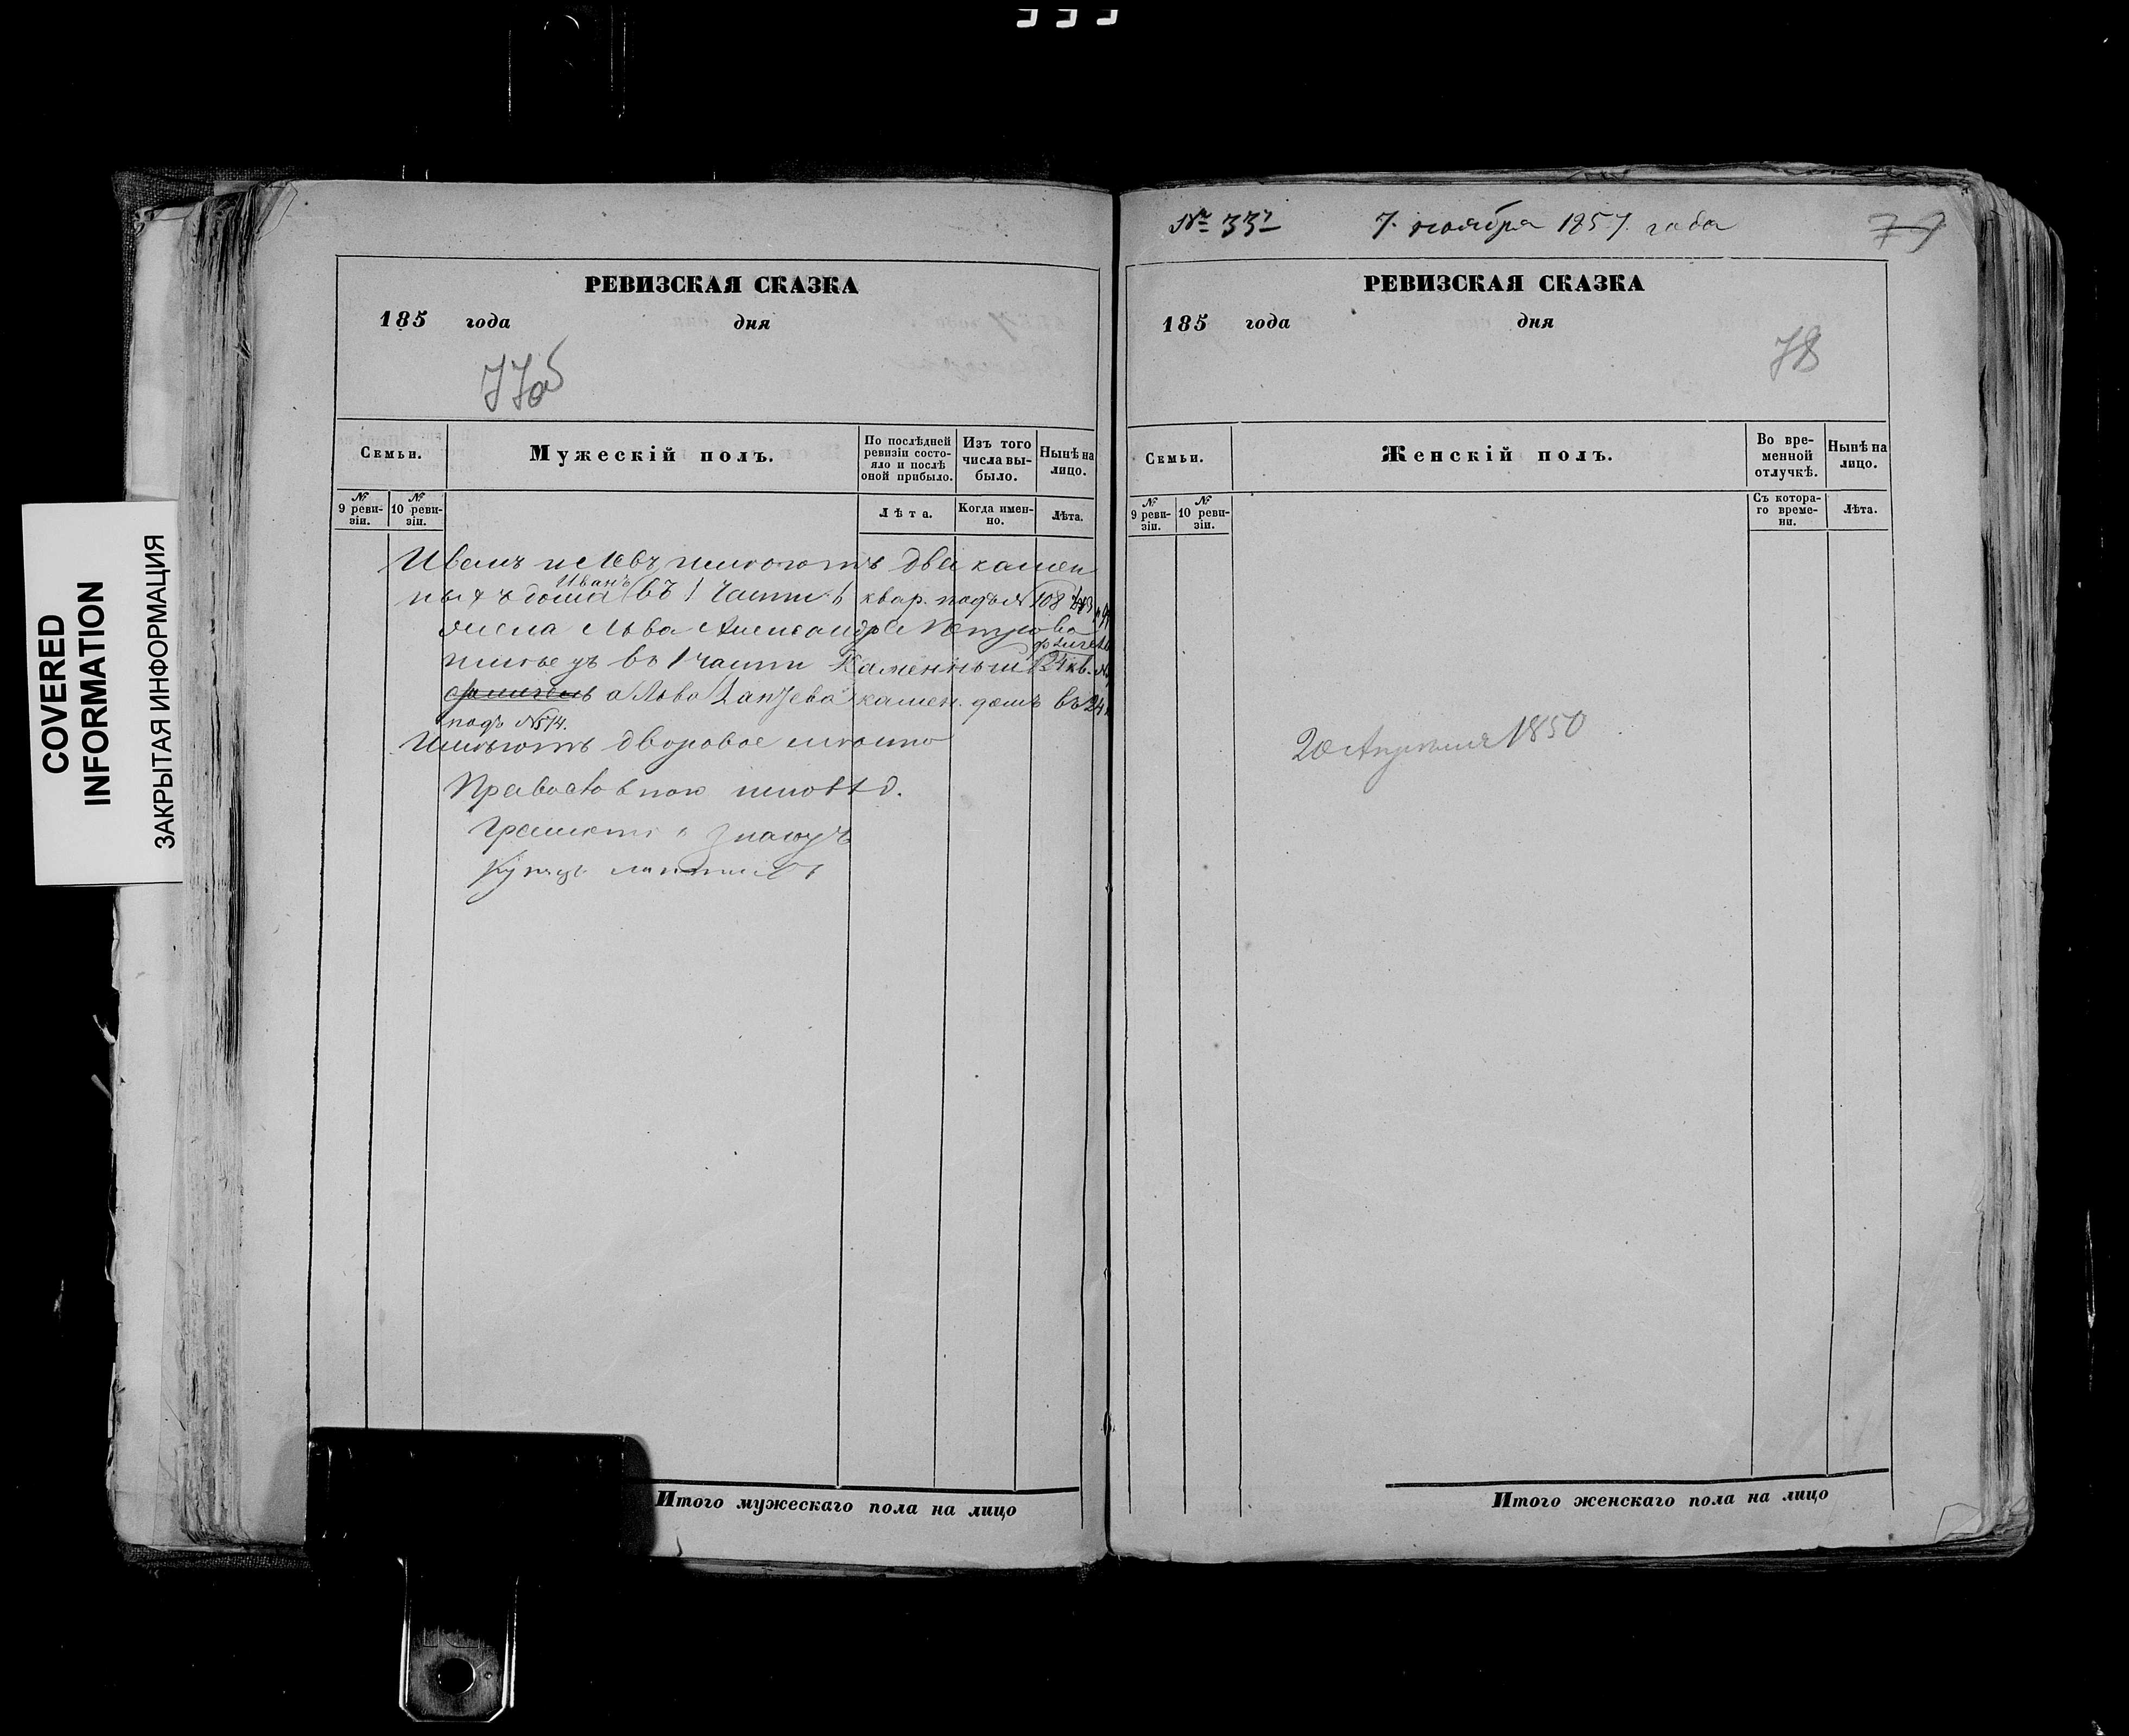 COVERED
INFORMATION
ЗАКРЫТАЯ ИНФОРМАЦИЯ
РЕВИЗСКАЯ СКАЗКА
185 года дня
77об
Семьи.
Мужескій полъ.
По послѣдней ревизіи состояло и послѣ оной прибыло.
Изъ того числа выбыло.
Нынѣ на лицо.
№ 9 ревизіи.
№ 10 ревизіи.
Лѣта.
Когда именно.
Лѣта.
Иванъ и Левъ имѣютъ два камен
ныхъ дома Иванъ въ 1 части квар. подъ № 108
Льва Александръ Петровъ
въ 1 части Каменный 24 кв.
а Льва камен. домъ въ 24
подъ № 514.
Имѣютъ дворовое мѣсто
Православнаго исповѣд.
Грамотѣ знаютъ
Купцъ
Итого мужескаго пола на лицо
№ 332 7. ноября 1857. года
77
РЕВИЗСКАЯ СКАЗКА
185 года дня
78
Семьи.
Женскій полъ.
Во временной отлучкѣ.
Нынѣ на лицо.
№ 9 ревизіи.
№ 10 ревизіи.
Съ котораго времени.
Лѣта.
20 Апрѣля 1850
Итого женскаго пола на лицо